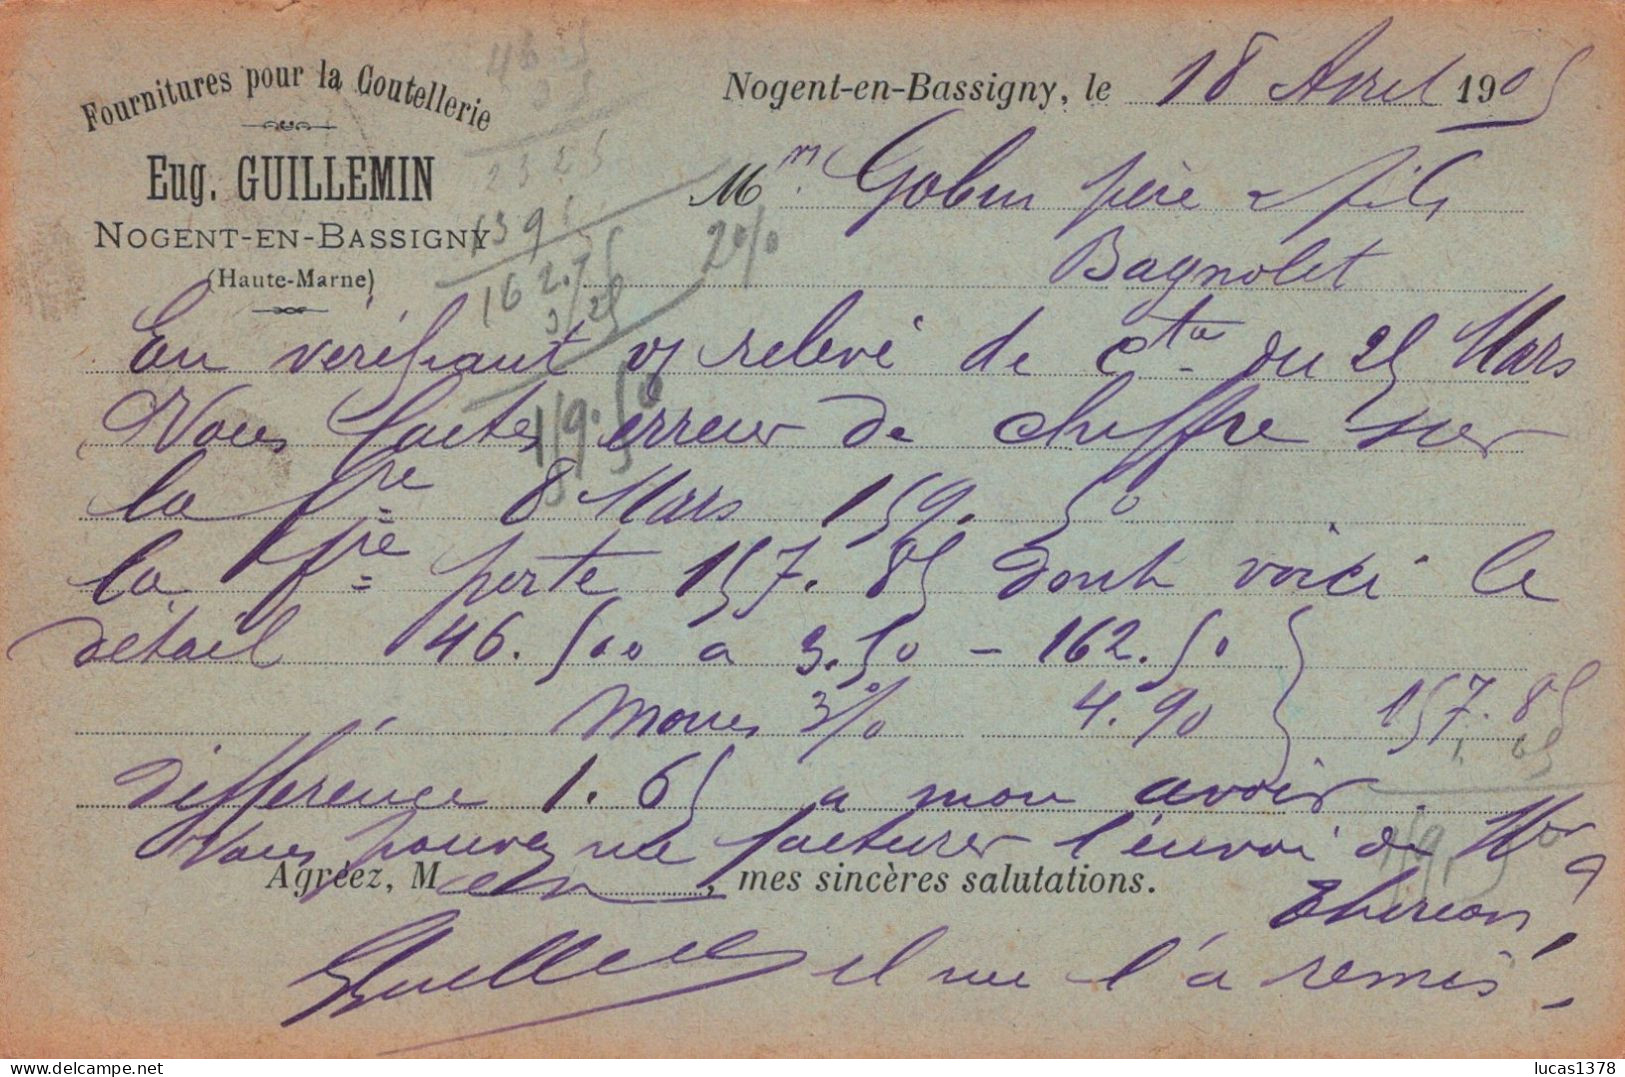 Fournitures pour la Coutellerie
Eug. GUILLEMIN
NOGENT-EN-BASSIGNY
(Haute-Marne)
Nogent-en-Bassigny, le 18 Avril 1905
Mrs Gobin père & fils
Bagnolet
En vérifiant v/ relevé de Cte du 25 Mars
Vous faites erreur de chiffre sur
la fre 8 Mars 159.50
la fre porte 157.85 dont voici le
détail 46.500 a 3.50 - 162.50
Moins 3% 4.90 157.85
différence 1.65 a mon avoir.
Vous pouvez me facturer l'envoi de Mr
Agréez, M , mes sincères salutations.
Therion,
Guillemin il me l'a remis.
46.5
3 5
2325
1395
162.75
3/25
2%
159.50
1.65
159.50
lucas1378